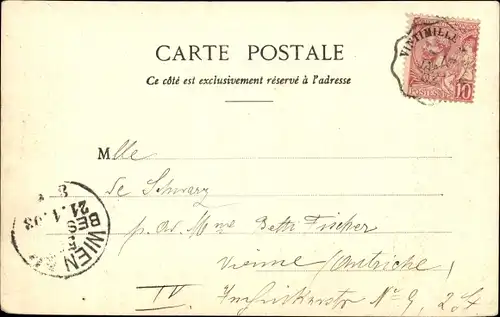 CARTE POSTALE
Ce côté est exclusivement réservé à l'adresse
VINTIMILLE
POSTES
10
Mlle
de Schwarz
p. Ad. Mme Betti Fischer
Vienne (Autriche)
IV. No 9, 2.
WIEN
BES
21.1.03